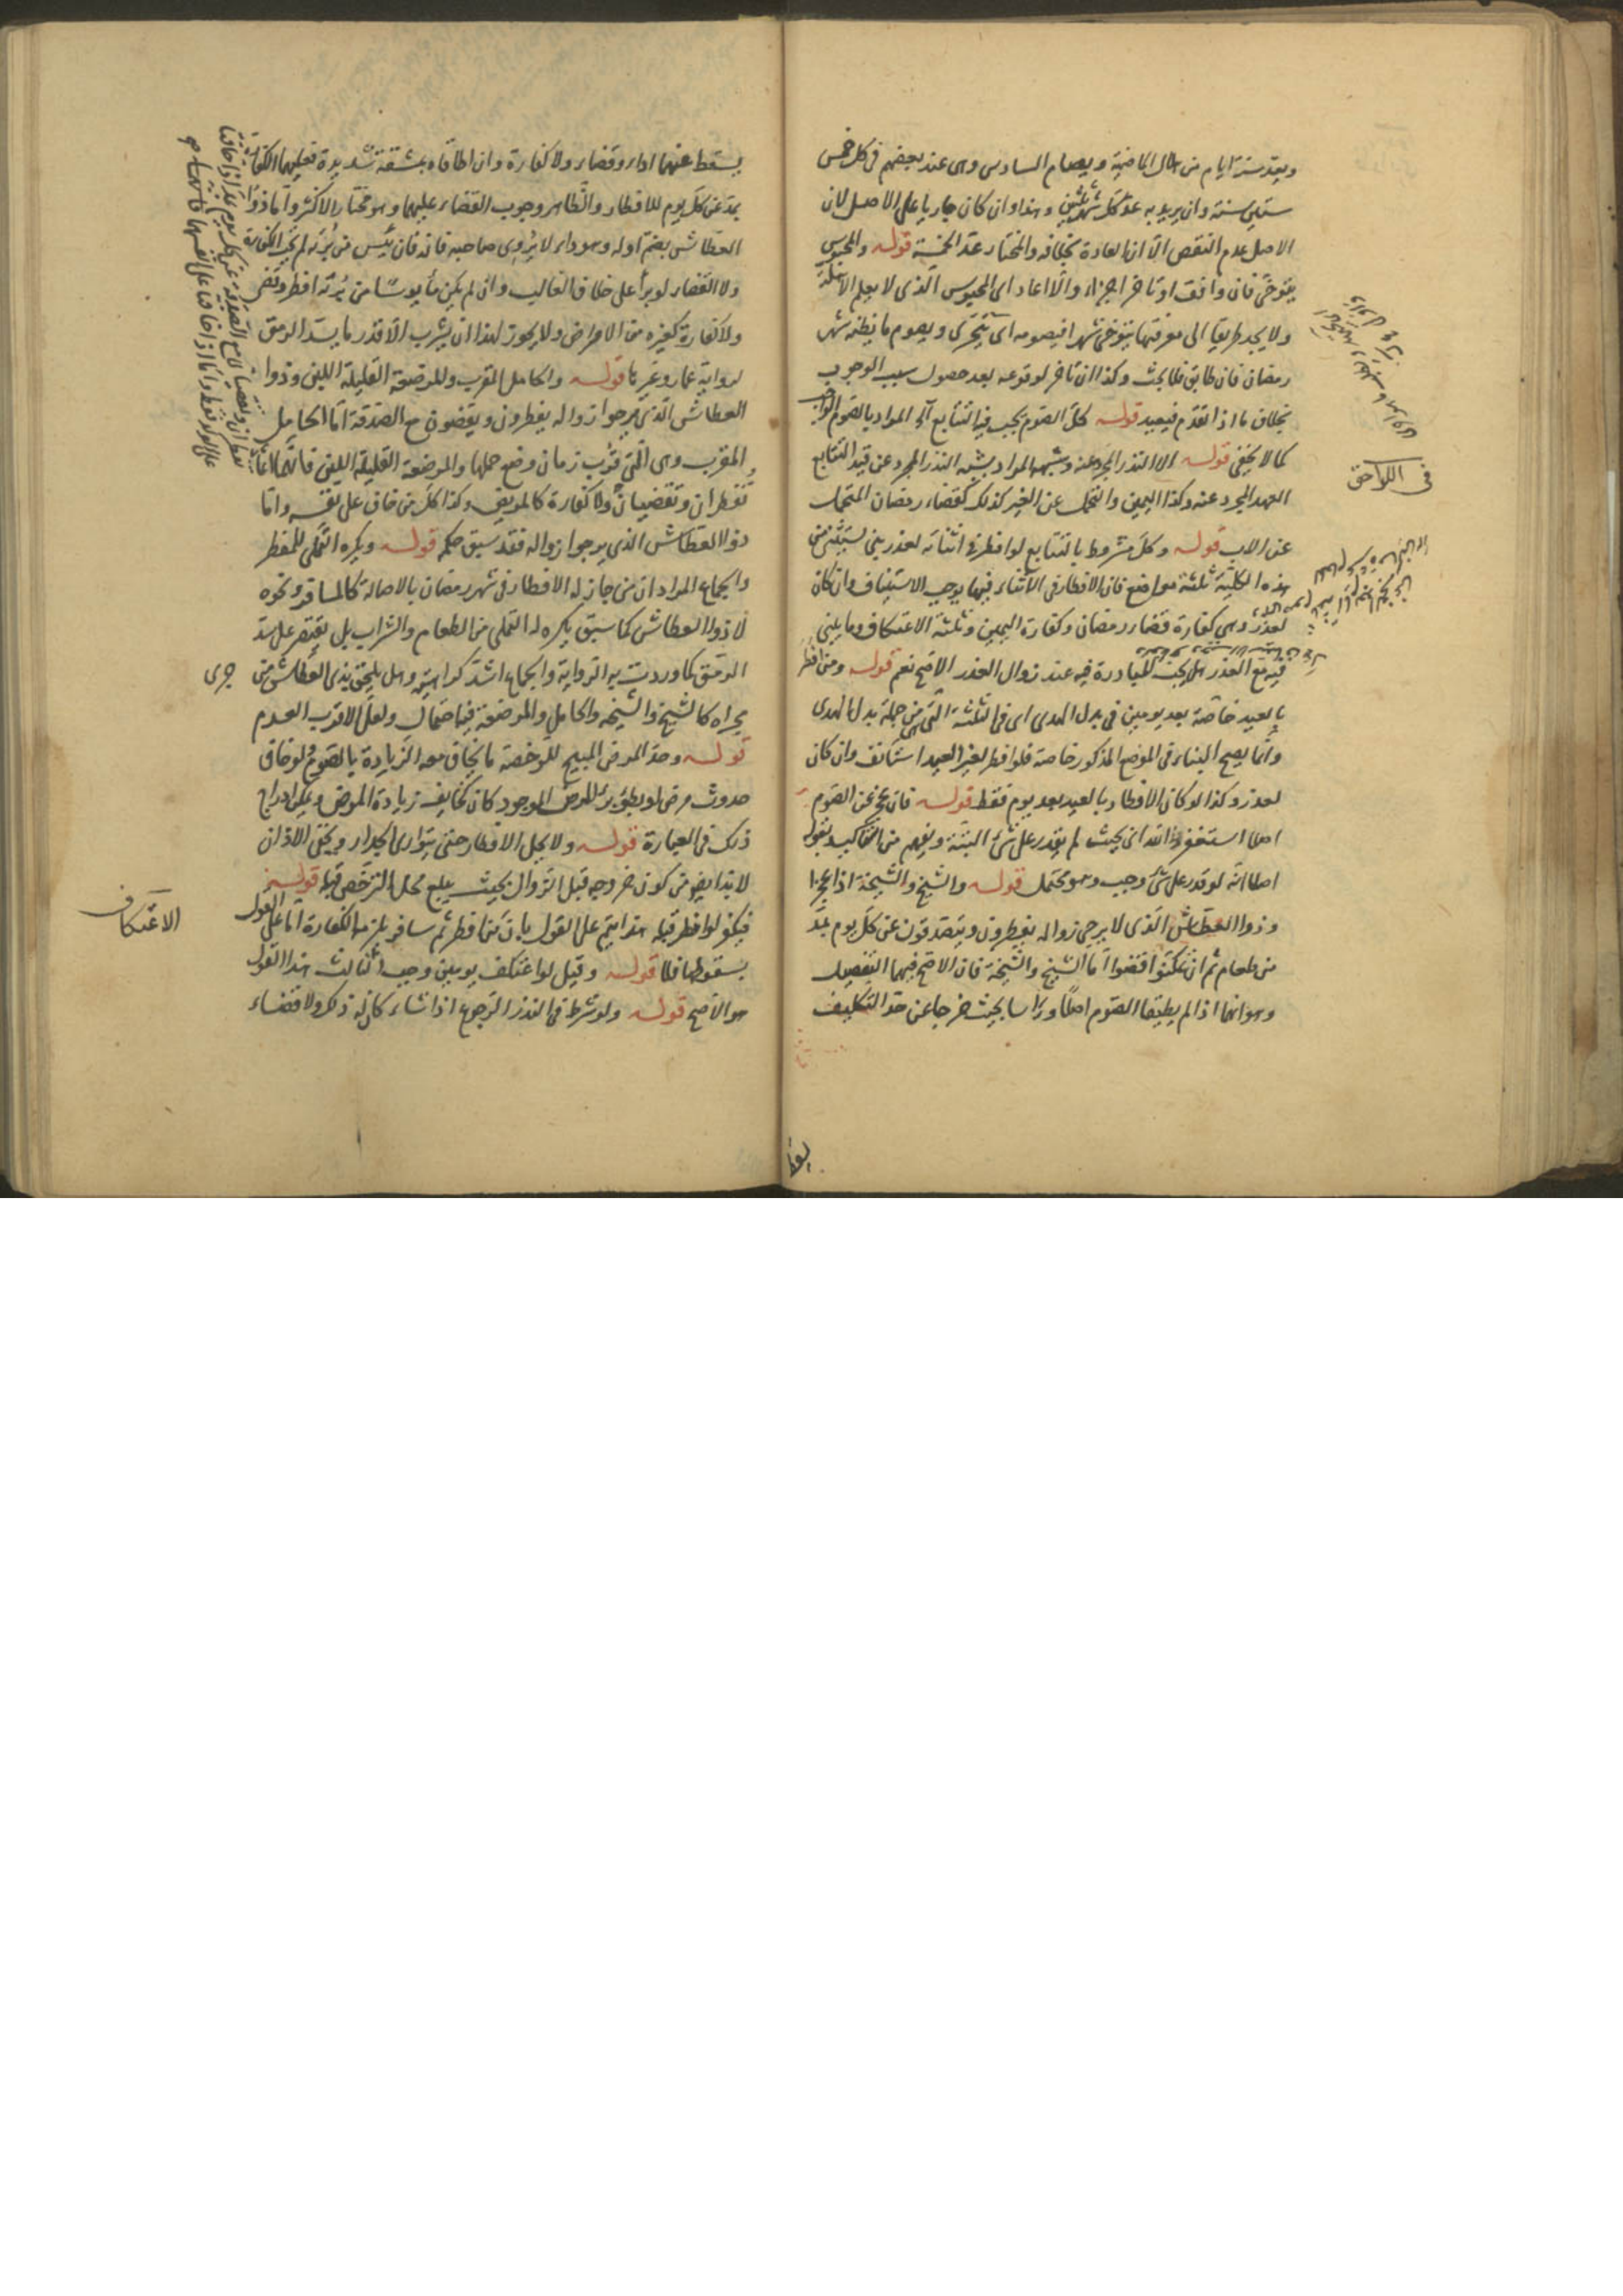 ويعد ستة ايام من هلال الماضية ويصام السادس وهى عند بعضهم فى كل خمس
سنين سنة وان يريد به عد كل شهر ثلثين وهذا وان كان جاريا على الاصل لان
الاصل عدم النقص الا ان العادة بخلافه والمختار عد الخمسة قوله والمحبوس
يتوخى فان وافق او تاخر اجزاء والا اعاد اى المحبوس الذى لا يعلم الاهلة
ولا يجد طريقا الى معرفتها يتوخى شهرا فيصومه اى يتحرى ويصوم ما يظنه شهر
رمضان فان طابق فلا بحث وكذا ان تاخر لوقوعه بعد حصول سبب الوجوب
بخلاف ما اذا تقدم فيعيد قوله كل الصوم يجب فيه التتابع آه المراد بالصوم الواجب
كما لا يخفى قوله الا النذر المجرد عنه وشبهه المراد بشبه النذر المجرد عن قيد التتابع
العهد المجرد عنه وكذا اليمين والتحمل عن الغير كذلك كقضاء رمضان المتحمل
عن الاب قوله وكل مشروط بالتتابع لو افطر فى اثنائه لعذر بنى يستثنى من
هذه الكلية ثلثة مواضع فان الافطار فى الاثناء فيها يوجب الاستيناف وان كان
لعذر وهى كفارة قضاء رمضان وكفارة اليمين وثلثة الاعتكاف وما يبنى
فيه مع العذر هل يجب المبادرة فيه عند زوال العذر الاصح نعم قوله ومن افطر
بالعيد خاصة بعد يومين فى بدل الهدى اى فى الثلثة التى من جملة بدل الهدى
وانما يصح البناء فى الموضع المذكور خاصة فلو افطر لغير العيد استانف وان كان
لعذر وكذا لو كان الافطار بالعيد بعد يوم فقط قوله فان عجز عن الصوم
اصلا استغفر الله اى بحيث لم يقدر على شئ البتة ويفهم من التاكيد بقوله
اصلا انه لو قدر على شئ وجب وهو محتمل قوله والشيخ والشيخة اذا عجزا
وذوا العطاش الذى لا يرجى زواله يفطرون ويتصدقون عن كل يوم بمد
من طعام ثم ان تمكنوا قضوا اما الشيخ والشيخة فان الاصح فيهما التفصيل
وهو انهما اذا لم يطيقا الصوم اصلا وراسا بحيث خرجا عن حد التكليف
فى اللواحق
يسقط عنهما اداء وقضاء ولا كفارة وان اطاقاه بمشقة شديدة فعليهما الكفارة
بمد عن كل يوم للافطار والظاهر وجوب القضاء عليهما وهو مختار الاكثر واما ذوا
العطاش بضم اوله وهو داء لا يروى صاحبه فانه فان يئس من برئه لم يجز الكفارة
ولا القضاء لو برأ على خلاف الغالب وان لم يكن مأيوسا من برئه افطر وقضى
ولا كفارة كغيره من الامراض ولا يجوز لهذا ان يشرب الا قدر ما يسد الرمق
لرواية عمار وغيرها قوله والحامل المقرب والمرضعة القليلة اللبن وذوا
العطاش الذى يرجوا زواله يفطرون ويقضون مع الصدقة اما الحامل
المقرب وهى التى قرب زمان وضع حملها والمرضعة القليلة اللبن فانهما
تفطران وتقضيان ولا كفارة كالمريض وكذا كل من خاف على نفسه واما
ذوا العطاش الذى يرجوا زواله فقد سبق حكمه قوله ويكره التملى للمفطر
والجماع المراد ان من جاز له الافطار فى شهر رمضان بالاصالة كالمسافر ونحوه
لا ذوا العطاش كما سبق يكره له التملى من الطعام والشراب بل يقتصر على سد
الرمق كما وردت به الرواية والجماع اشد كراهية وهل يلحق بذى العطاش من جرى
مجراه كالشيخ والشيخة والحامل والمرضعة فيه احتمال ولعل الاقرب العدم
قوله وحد المرض المبيح للرخصة ما يخاف معه الزيادة بالصوم لو خاف
حدوث مرض او بطؤ برء المرض الموجود كان كخايف زيادة المرض ويمكن ادراج
ذلك فى العبارة قوله ولا يحل الافطار حتى يتوارى الجدار ويخفى الاذان
لا بد ايضا من كون خروجه قبل الزوال بحيث يبلغ محل الترخص قبله قوله
فيكفر لو افطر قبله هذا يتم على القول بان من افطر ثم سافر يلزمه الكفارة اما على القول
بسقوطها فلا قوله وقيل لو اعتكف يومين وجب الثالث هذا القول
هو الاصح قوله ولو شرط فى النذر الرجوع اذا شاء كان له ذلك ولا قضاء
الاعتكاف